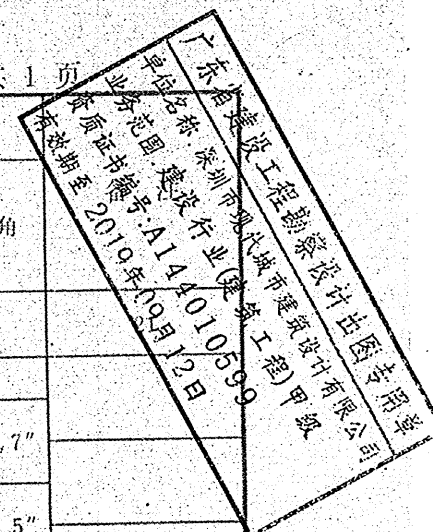 共 1 页
角
.7"
5"
广东省建设工程勘察设计出图专用章
单位名称:深圳市现代城市建筑设计有限公司
业务范围:建设行业(建筑工程)甲级
资质证书编号:A144010599
有效期至 2019年09月12日